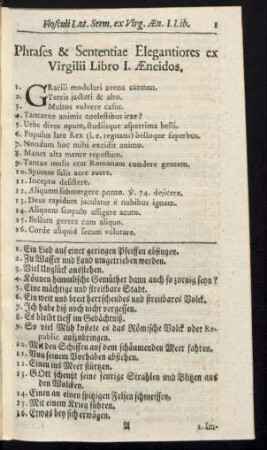 Flosculi Lat. Serm. ex Virg. Æn. I. Lib. 1
Phrases & Sententiæ Elegantiores ex
Virgilii Libro I. Æneidos.
1. GRacili modulari avena carmen.
2. Terris jactati & alto.
3. Multos volvere casus.
4. Tantæne animis cœlestibus iræ?
5. Urbs dives opum, studiisque asperrima belli.
6. Populus late Rex (i. e. regnans) belloque superbus.
7. Nondum hoc mihi excidit animo.
8. Manet alta mente repostum.
9. Tantæ molis erat Romanam condere gentem.
10. Spumas salis aere ruere.
11. Incepto desistere.
12. Aliquem submergere ponto. V. 74. dejicere.
13. Deus rapidum jaculatur è nubibus ignem.
14. Aliquem scopulo affigere acuto.
15. Bellum gerere cum aliquo.
16. Corde aliquid secum volutare.
1. Ein Lied auf einer geringen Pfeiffen absingen.
2. Zu Wasser und Land umgetrieben werden.
3. Viel Unglück ausstehen.
4. Können himmlische Gemüther dann auch so zornig seyn?
5. Eine mächtige und streitbare Stadt.
6. Ein weit und breit herrschendes und streitbares Volck.
7. Ich habe diß noch nicht vergessen.
8. Es bleibt tieff im Gedächtniß.
9. So viel Müh kostete es das Römische Volck oder Re-
public aufzubringen.
10. Mit den Schiffen auf dem schäumenden Meer fahren.
11. Von seinem Vorhaben abstehen.
12. Einen ins Meer stürtzen.
13. GOtt scheust seine feurige Strahlen und Blitzen aus
den Wolcken.
14. Einen an einen spitzigen Felsen schmeissen.
15. Mit einem Krieg führen.
16. Etwas bey sich erwägen.
A